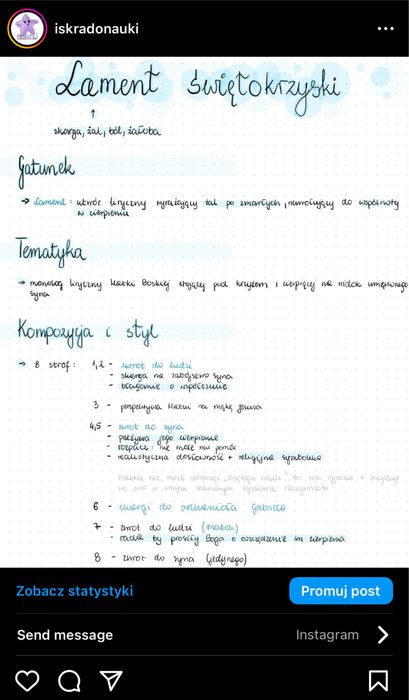 iskradonauki
Lament świętokrzyski
skarga, żal, ból, żałoba
Gatunek
→ Lament : utwór liryczny wyrażający żal po zmarłych, nawołujący do wspólnoty
w cierpieniu
Tematyka
→ monolog liryczny Matki Boskiej stojącej pod krzyżem i cierpiącej na widok umęczonego
syna
Kompozycja i styl
→ 8 strof : 1,2 - zwrot do ludzi
- skarga na zabójstwo syna
- błaganie o współczucie
3 - perspektywa Matki na mękę Jezusa
4,5 - zwrot do syna
- przeżywa jego cierpienie
- rozpacz : nie może mu pomóc
- realistyczna dosłowność + religijna symbolika
Matka nie może dosięgnąć
6 - skargi do archanioła Gabriela
7 - zwrot do ludzi (matek)
- radzi by prosiły Boga o oszczędzenie im cierpienia
8 - zwrot do syna (jedynego)
Zobacz statystyki
Promuj post
Send message
Instagram